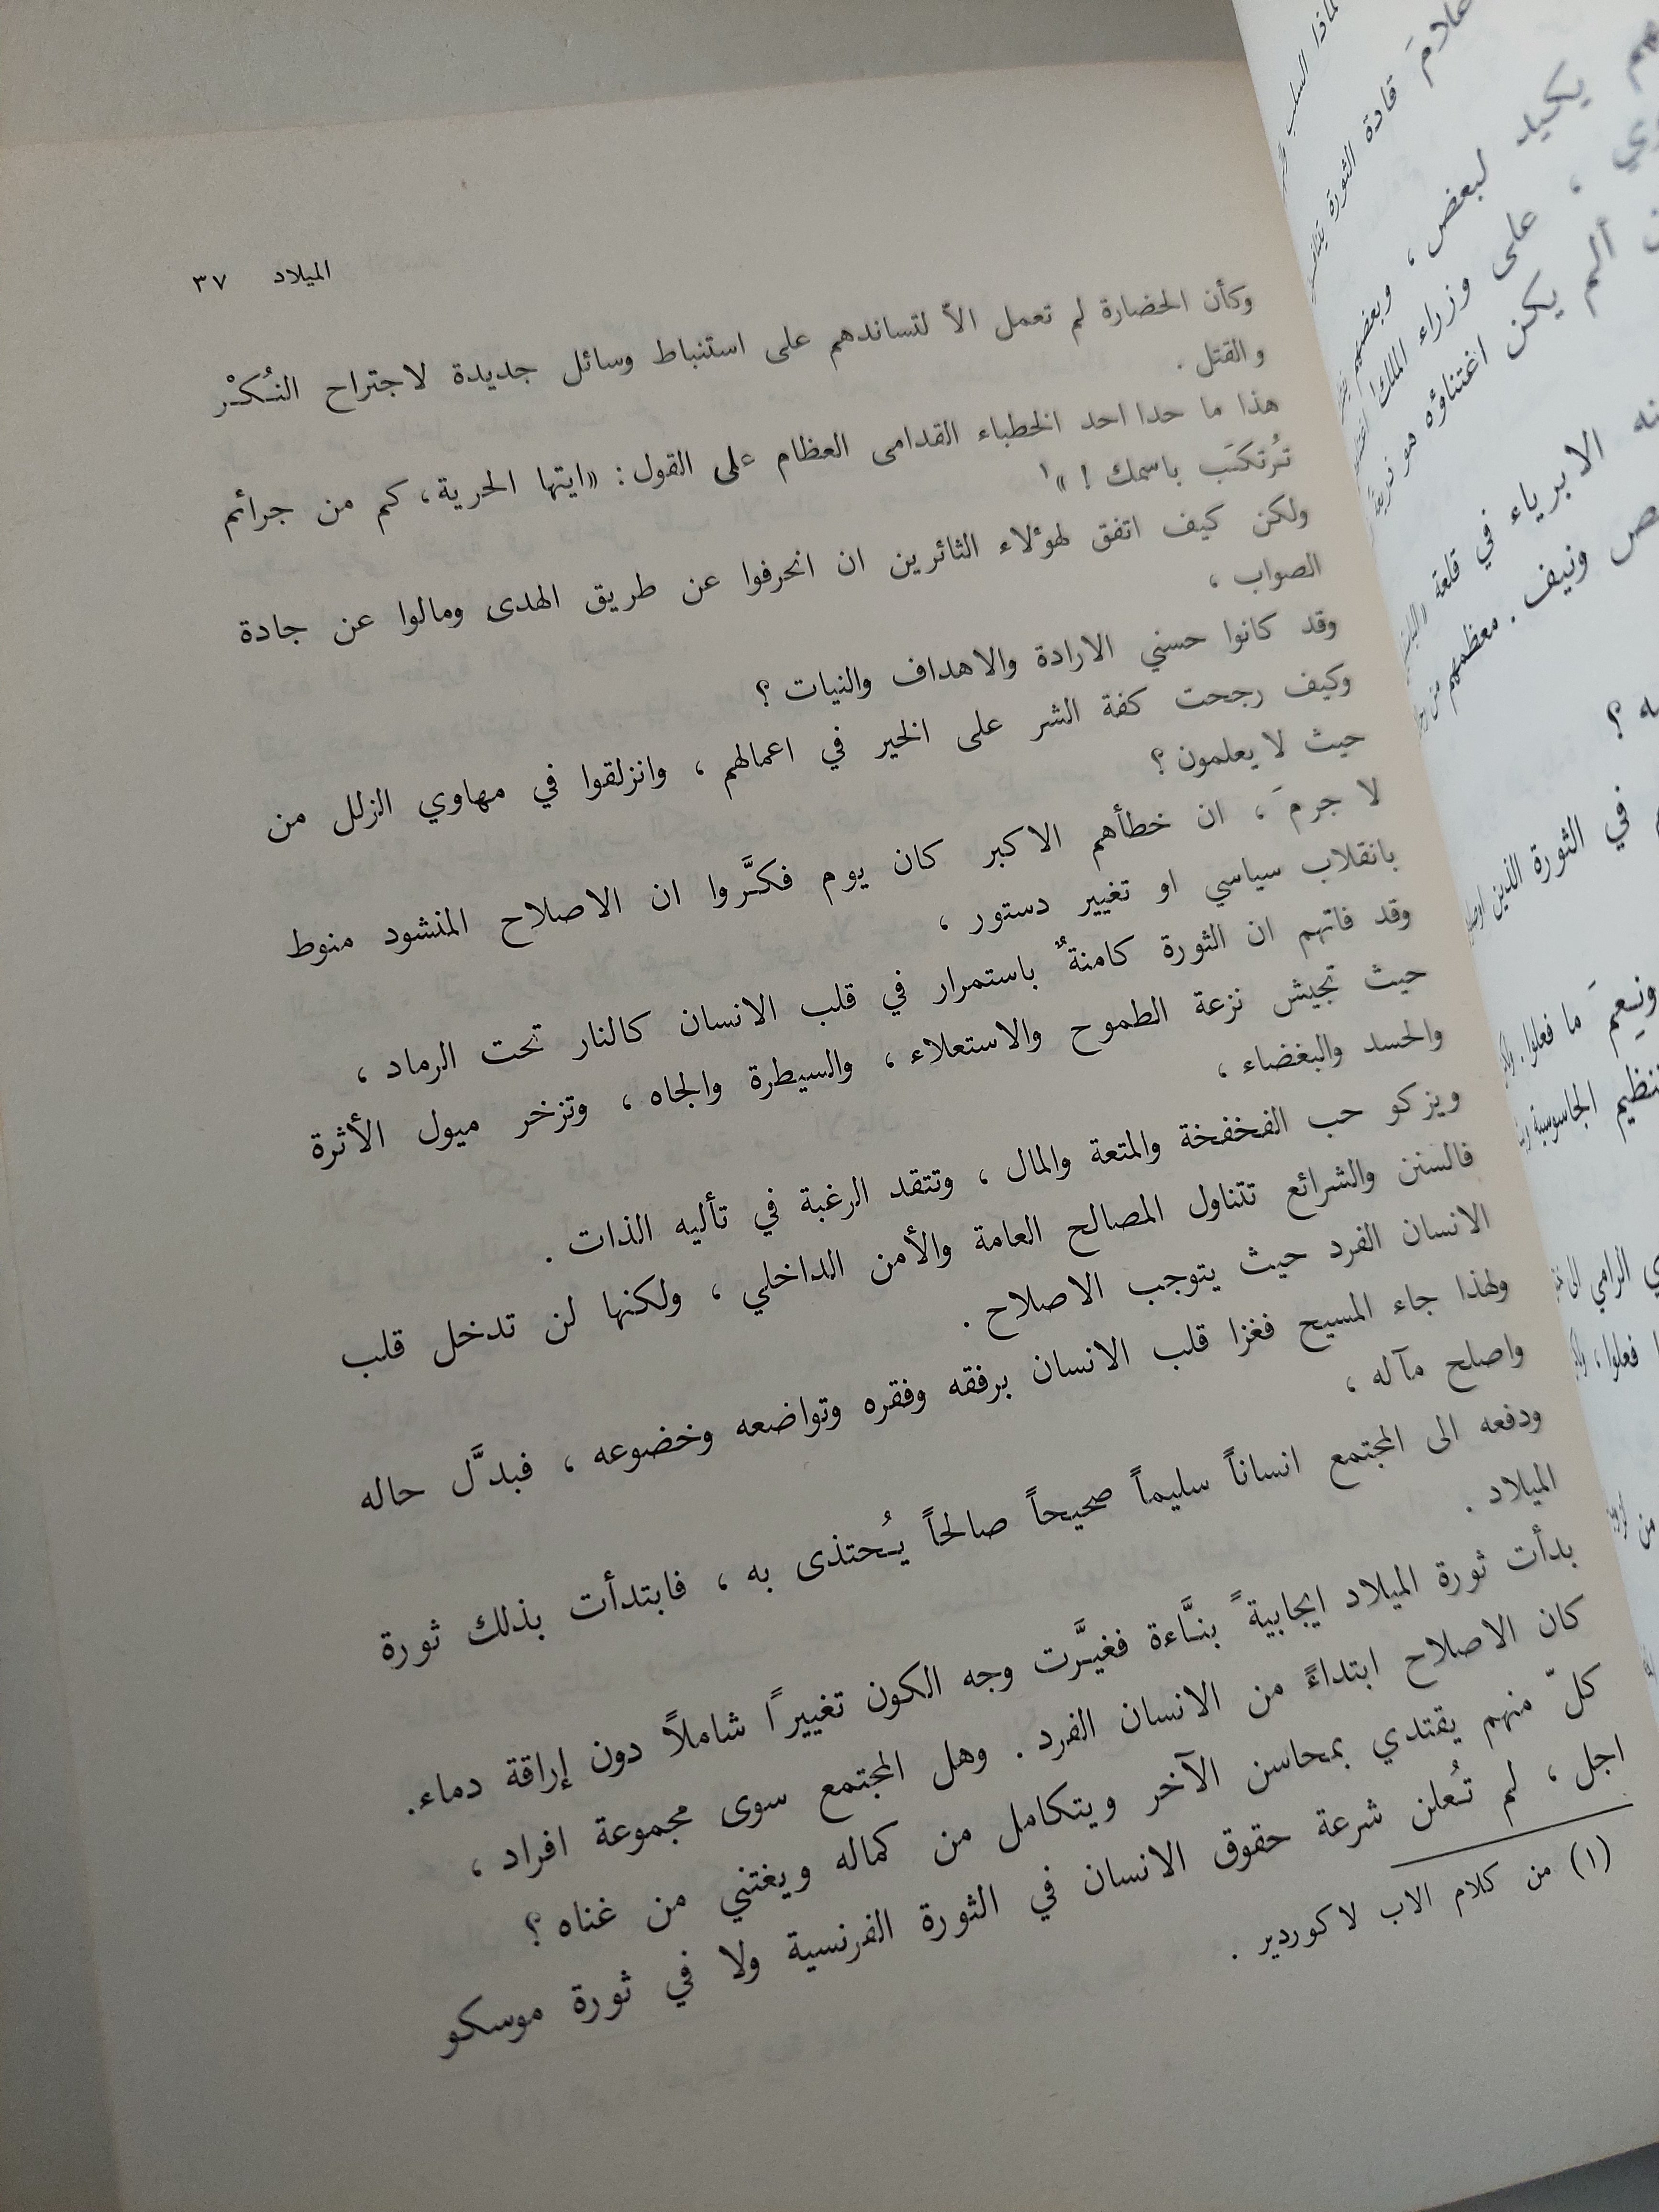 الميلاد ٣٧
وكأن الحضارة لم تعمل الاّ لتساندهم على استنباط وسائل جديدة لاجتراح النُكْر
والقتل .
هذا ما حدا احد الخطباء القدامى العظام على القول : «ايتها الحرية ، كم من جرائم
تُرتكَب باسمك ! »١
ولكن كيف اتفق لهؤلاء الثائرين ان انحرفوا عن طريق الهدى ومالوا عن جادة
الصواب ،
وقد كانوا حسني الارادة والاهداف والنيات ؟
وكيف رجحت كفة الشر على الخير في اعمالهم ، وانزلقوا في مهاوي الزلل من
حيث لا يعلمون ؟
لا جرمَ ، ان خطأهم الاكبر كان يوم فكَّروا ان الاصلاح المنشود منوط
بانقلاب سياسي او تغيير دستور ،
وقد فاتهم ان الثورة كامنةٌ باستمرار في قلب الانسان كالنار تحت الرماد ،
حيث تجيش نزعة الطموح والاستعلاء ، والسيطرة والجاه ، وتزخر ميول الأثرة
والحسد والبغضاء ،
ويزكو حب الفخفخة والمتعة والمال ، وتتقد الرغبة في تأليه الذات .
فالسنن والشرائع تتناول المصالح العامة والأمن الداخلي ، ولكنها لن تدخل قلب
الانسان الفرد حيث يتوجب الاصلاح .
ولهذا جاء المسيح فغزا قلب الانسان برفقه وفقره وتواضعه وخضوعه ، فبدَّل حاله
واصلح مآله ،
ودفعه الى المجتمع انساناً سليماً صحيحاً صالحاً يُحتذى به ، فابتدأت بذلك ثورة
الميلاد .
بدأت ثورة الميلاد ايجابيةً بنَّاءة فغيَّرت وجه الكون تغييراً شاملاً دون إراقة دماء.
كان الاصلاح ابتداءً من الانسان الفرد . وهل المجتمع سوى مجموعة افراد ،
كلّ منهم يقتدي بمحاسن الآخر ويتكامل من كماله ويغتني من غناه ؟
اجل ، لم تُعلن شرعة حقوق الانسان في الثورة الفرنسية ولا في ثورة موسكو
(١) من كلام الاب لاكوردير .
قادة الثورة
يكيد لبعض ، وبعضهم
على وزراء الملك
ألم يكن اغتناؤه هو
الابرياء في قلعة
ونيف . معظمهم
في الثورة الذين
ونِعمَ ما فعلوا .
الجاسوسية
الرامي الى
فعلوا ،
من